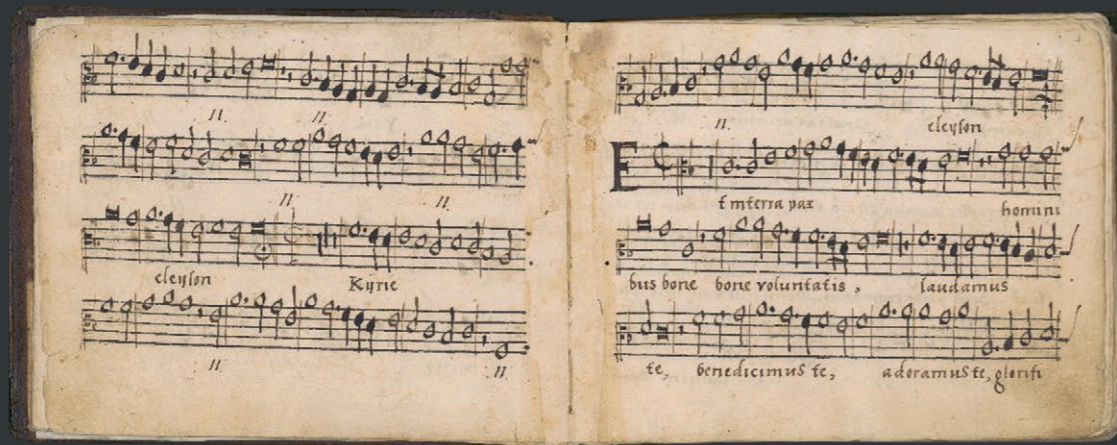 II. II.
II. II.
eleyson Kyrie
II. II.
II. eleyson
Et in terra pax homini
bus bone bone voluntatis, laudamus
te, benedicimus te, adoramus te, glorifi